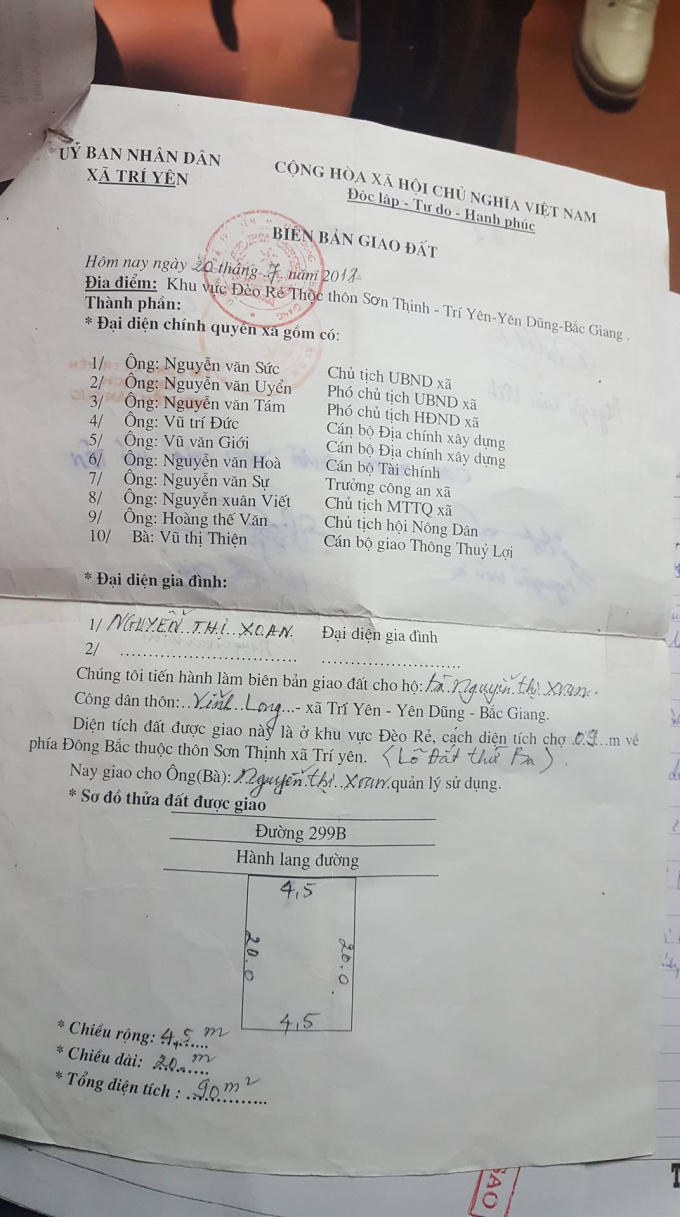 UỶ BAN NHÂN DÂN
XÃ TRÍ YÊN
CỘNG HÒA XÃ HỘI CHỦ NGHĨA VIỆT NAM
Độc lập - Tư do - Hanh phúc
BIÊN BẢN GIAO ĐẤT
Hôm nay ngày 20 tháng 7 năm 2012
Đia điểm: Khu vực Đèo Rẻ Thộc thôn Sơn Thịnh - Trí Yên-Yên Dũng-Bắc Giang .
Thành phần:
* Đại diện chính quyền xã gồm có:
1/ Ông: Nguyễn văn Sức Chủ tịch UBND xã
2/ Ông: Nguyễn văn Uyển Phó chủ tịch UBND xã
3/ Ông: Nguyễn văn Tám Phó chủ tịch HĐND xã
4/ Ông: Vũ trí Đức Cán bộ Địa chính xây dựng
5/ Ông: Vũ văn Giới Cán bộ Địa chính xây dựng
6/ Ông: Nguyễn văn Hoà Cán bộ Tài chính
7/ Ông: Nguyễn văn Sự Trưởng công an xã
8/ Ông: Nguyễn xuân Viết Chủ tịch MTTQ xã
9/ Ông: Hoàng thế Văn Chủ tịch hội Nông Dân
10/ Bà: Vũ thị Thiện Cán bộ giao Thông Thuỷ Lợi
* Đại diện gia đình:
1/ NGUYỄN THỊ XOAN Đại diện gia đình
2/ ..............................
Chúng tôi tiến hành làm biên bản giao đất cho hộ: bà Nguyễn thị Xoan.
Công dân thôn: Vĩnh Long - xã Trí Yên - Yên Dũng - Bắc Giang.
Diện tích đất được giao này là ở khu vực Đèo Rẻ, cách diện tích chợ 09 m về
phía Đông Bắc thuộc thôn Sơn Thịnh xã Trí yên. (Lô Đất thứ Ba).
Nay giao cho Ông(Bà): Nguyễn thị Xoan quản lý sử dụng.
* Sơ đồ thửa đất được giao
Đường 299B
Hành lang đường
4,5
20.0
20.0
4,5
* Chiều rộng: 4,5 m
* Chiều dài: 20 m
* Tổng diện tích : 90 m²